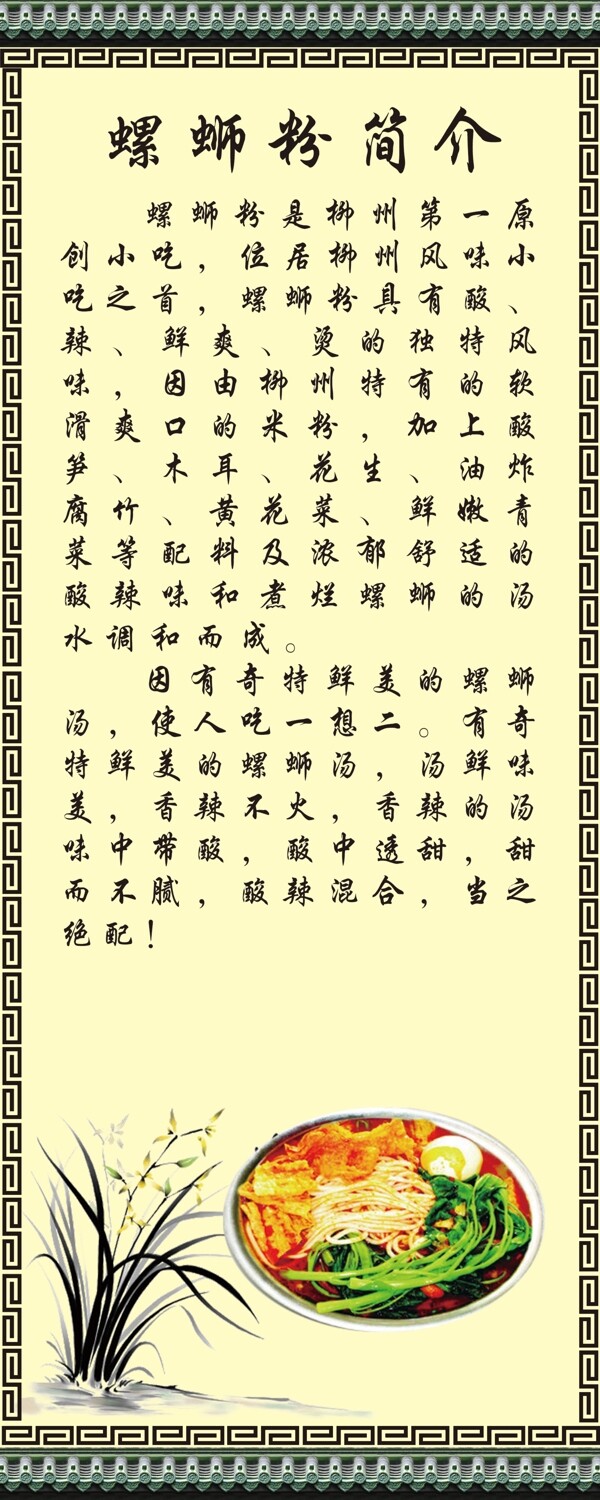 螺蛳粉简介
螺蛳粉是柳州第一原
创小吃，位居柳州风味小
吃之首，螺蛳粉具有酸、
辣、鲜爽、烫的独特风
味，因由柳州特有的软
滑爽口的米粉，加上酸
笋、木耳、花生、油炸
腐竹、黄花菜、鲜嫩青
菜等配料及浓郁舒适的
酸辣味和煮烂螺蛳的汤
水调和而成。
因有奇特鲜美的螺蛳
汤，使人吃一想二。有奇
特鲜美的螺蛳汤，汤鲜味
美，香辣不火，香辣的汤
味中带酸，酸中透甜，甜
而不腻，酸辣混合，当之
绝配！